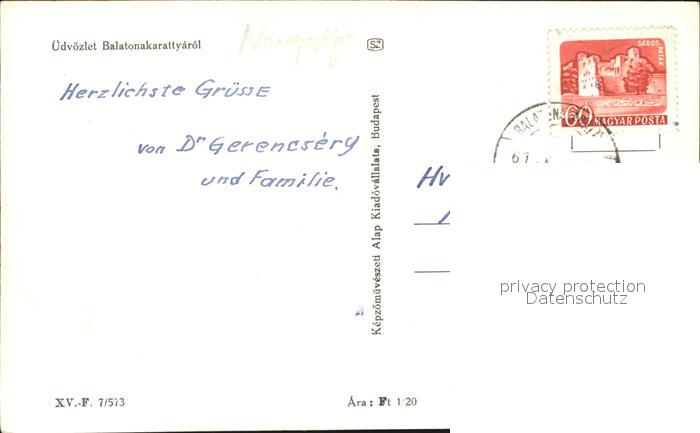 Üdvözlet Balatonakarattyáról
SZ
Herzlichste Grüsse
von Dr Gerencséry
und Familie.
Képzőművészeti Alap Kiadóvállalata, Budapest
SÁROSPATAK
60
MAGYAR POSTA
67
Hv
privacy protection
Datenschutz
XV.-F. 7/573
Ára: Ft 1·20